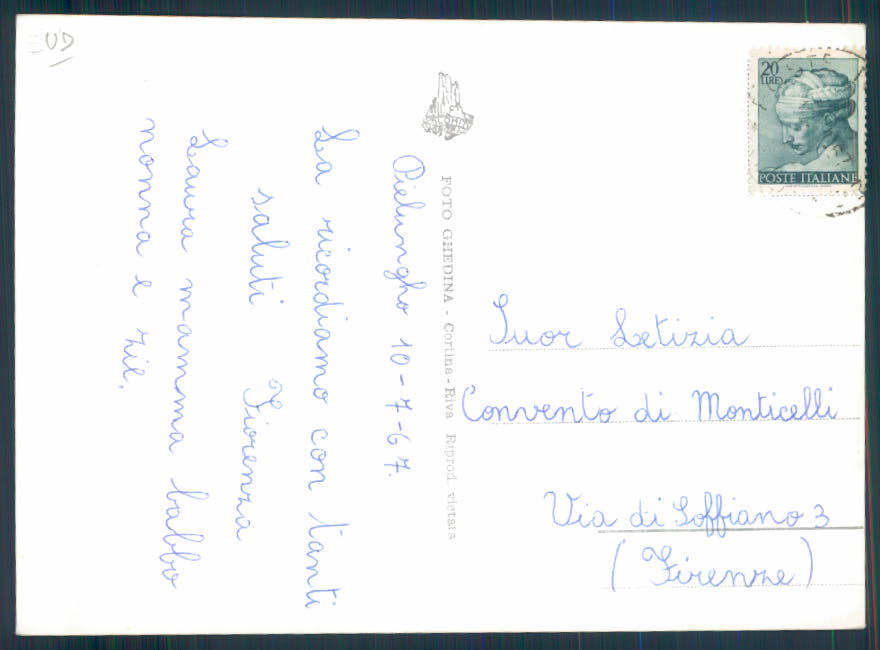 UD
Pielungho 10-7-67.
La ricordiamo con tanti
saluti Fiorenza
Laura mamma babbo
nonna e zie.
GHEDINA
FOTO GHEDINA - Cortina - Riva Riprod. vietata
20
LIRE
POSTE ITALIANE
Suor Letizia
Convento di Monticelli
Via di Soffiano 3
(Firenze)